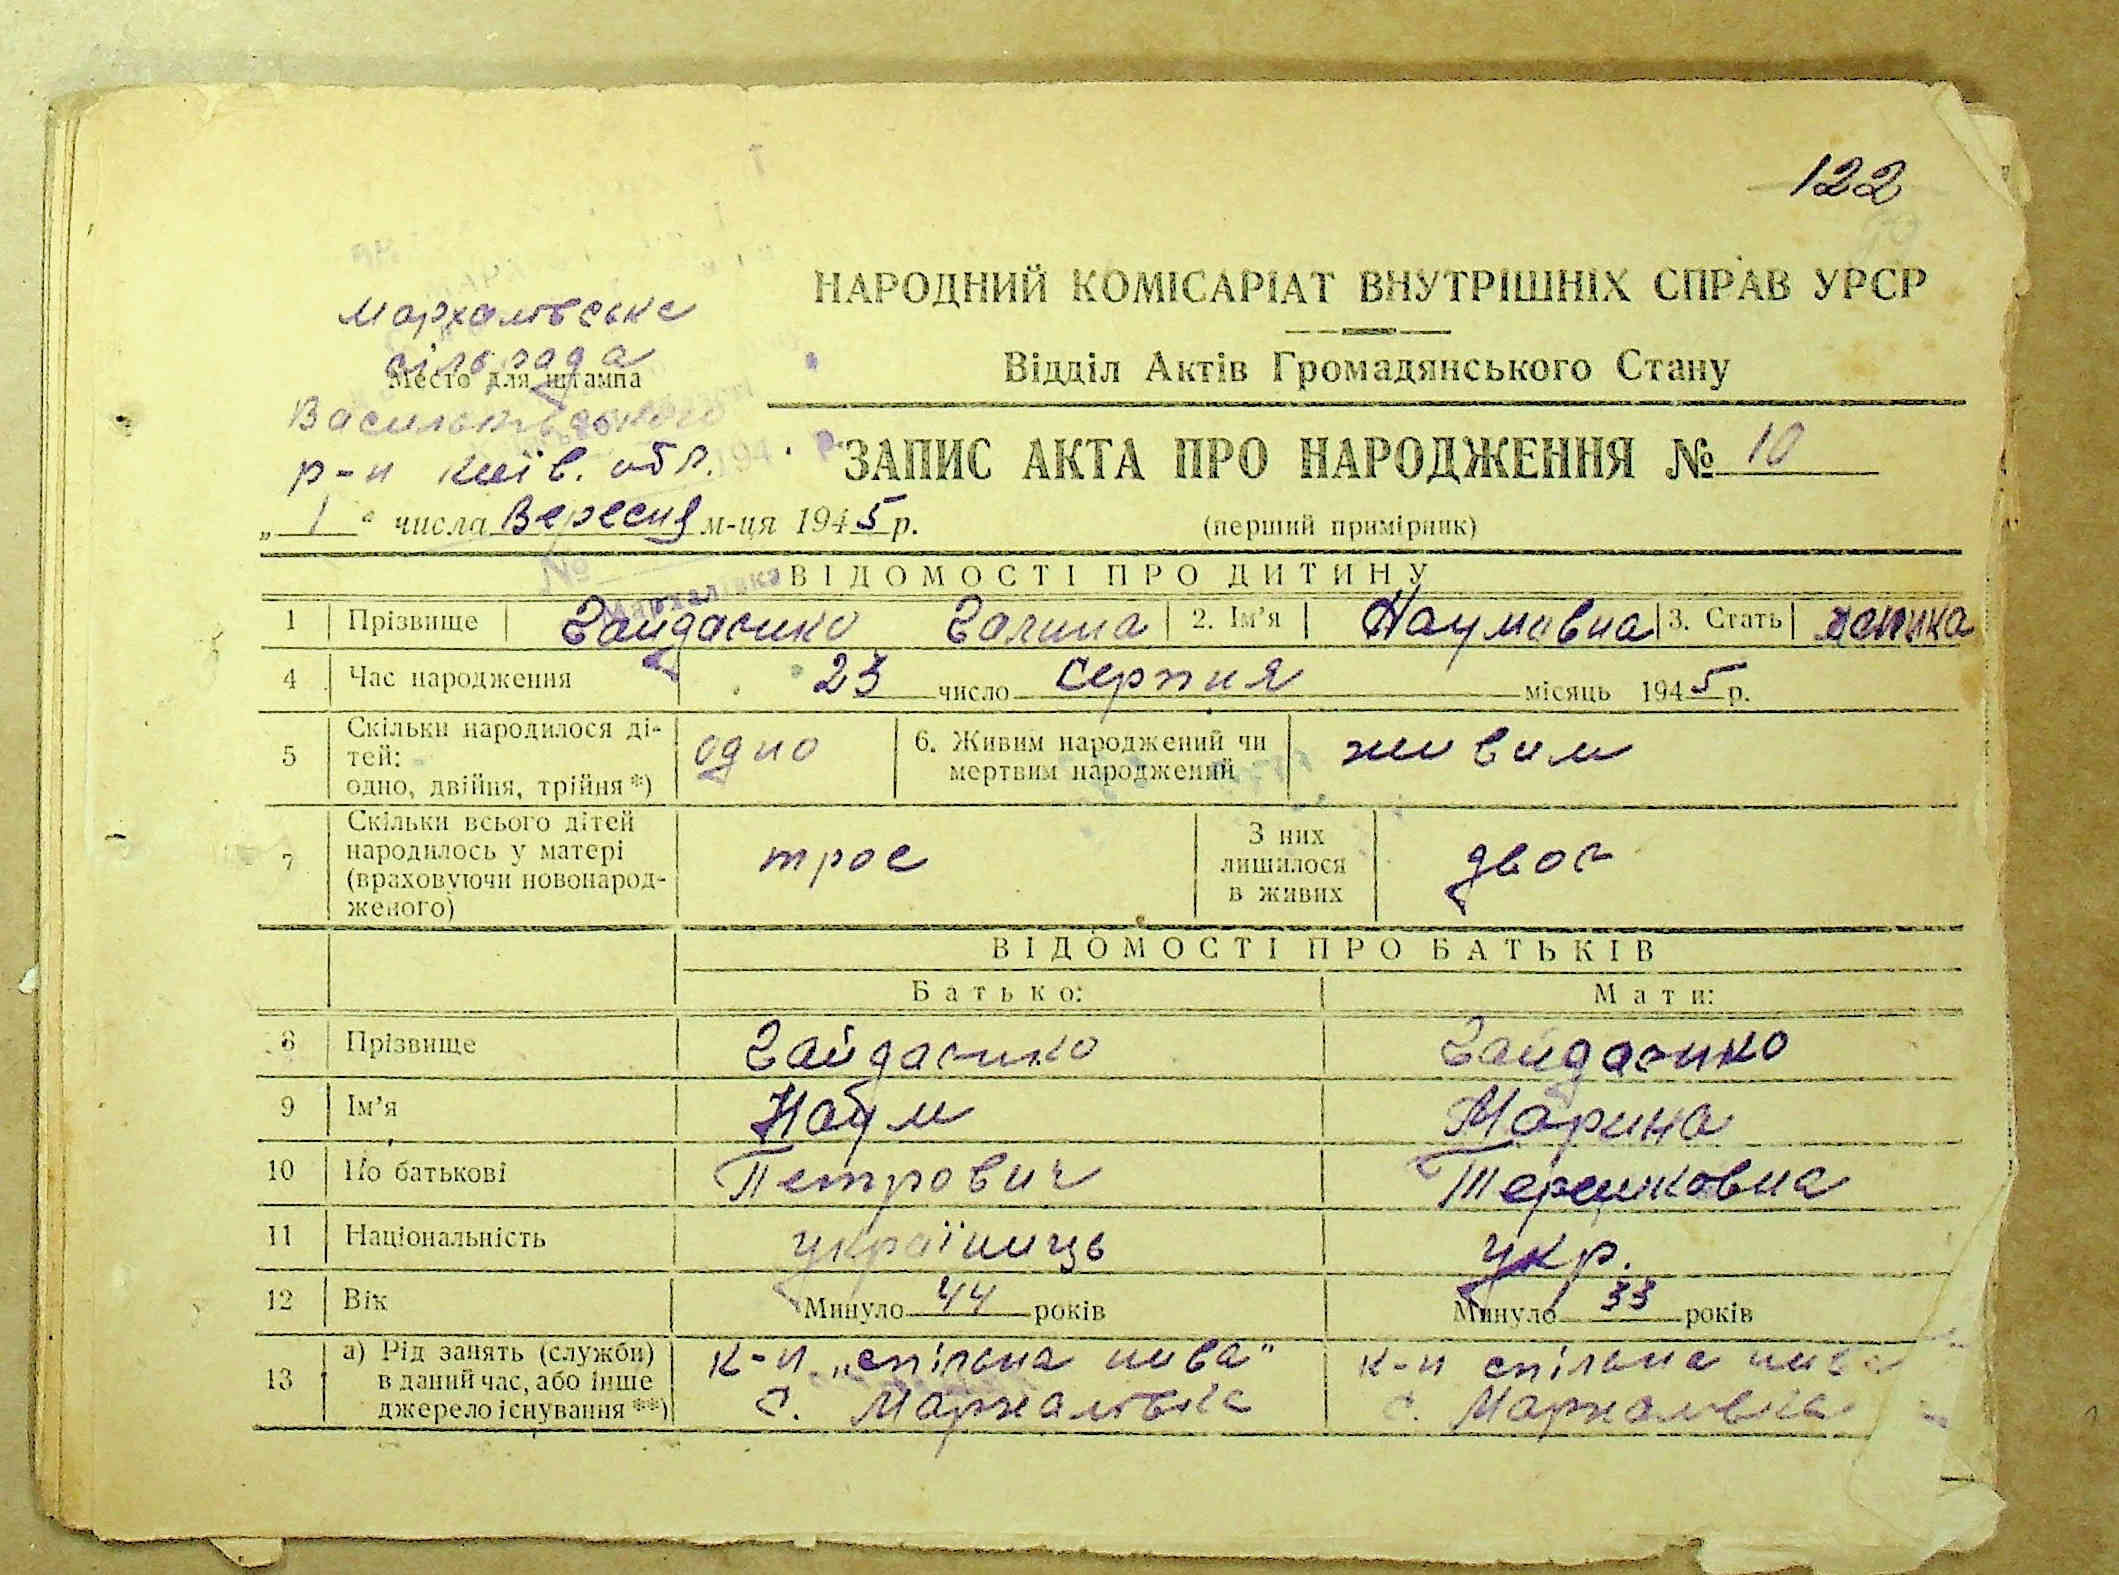 122
НАРОДНИЙ КОМІСАРІАТ ВНУТРІШНІХ СПРАВ УРСР
Відділ Актів Громадянського Стану
Мархалівська
сільрада
Место для штампа
Васильківського
р-н Київ. обл.
ЗАПИС АКТА ПРО НАРОДЖЕННЯ № 10
„ 1 " числа Вересня м-ця 1945 р.
(перший примірник)
№
Мархалівка
ВІДОМОСТІ ПРО ДИТИНУ
1 Прізвище Гайдасенко Галина 2. Ім'я Наумивна 3. Стать женска
4 Час народження 23 число Серпня місяць 1945 р.
5 Скільки народилося дітей: одно, двійня, трійня *) одно 6. Живим народжений чи мертвим народжений живим
7 Скільки всього дітей народилось у матері (враховуючи новонародженого) троє З них лишилося в живих двоє
ВІДОМОСТІ ПРО БАТЬКІВ
Батько: Мати:
8 Прізвище Гайдасенко Гайдасенко
9 Ім'я Наум Марина
10 По батькові Петрович Терешковна
11 Національність українць укр.
12 Вік Минуло 44 років Минуло 33 років
13 а) Рід занять (служби) в даний час, або інше джерело існування **) к-п „спільна нива" с. Мархалівка к-п спільна нива с. Мархалівка